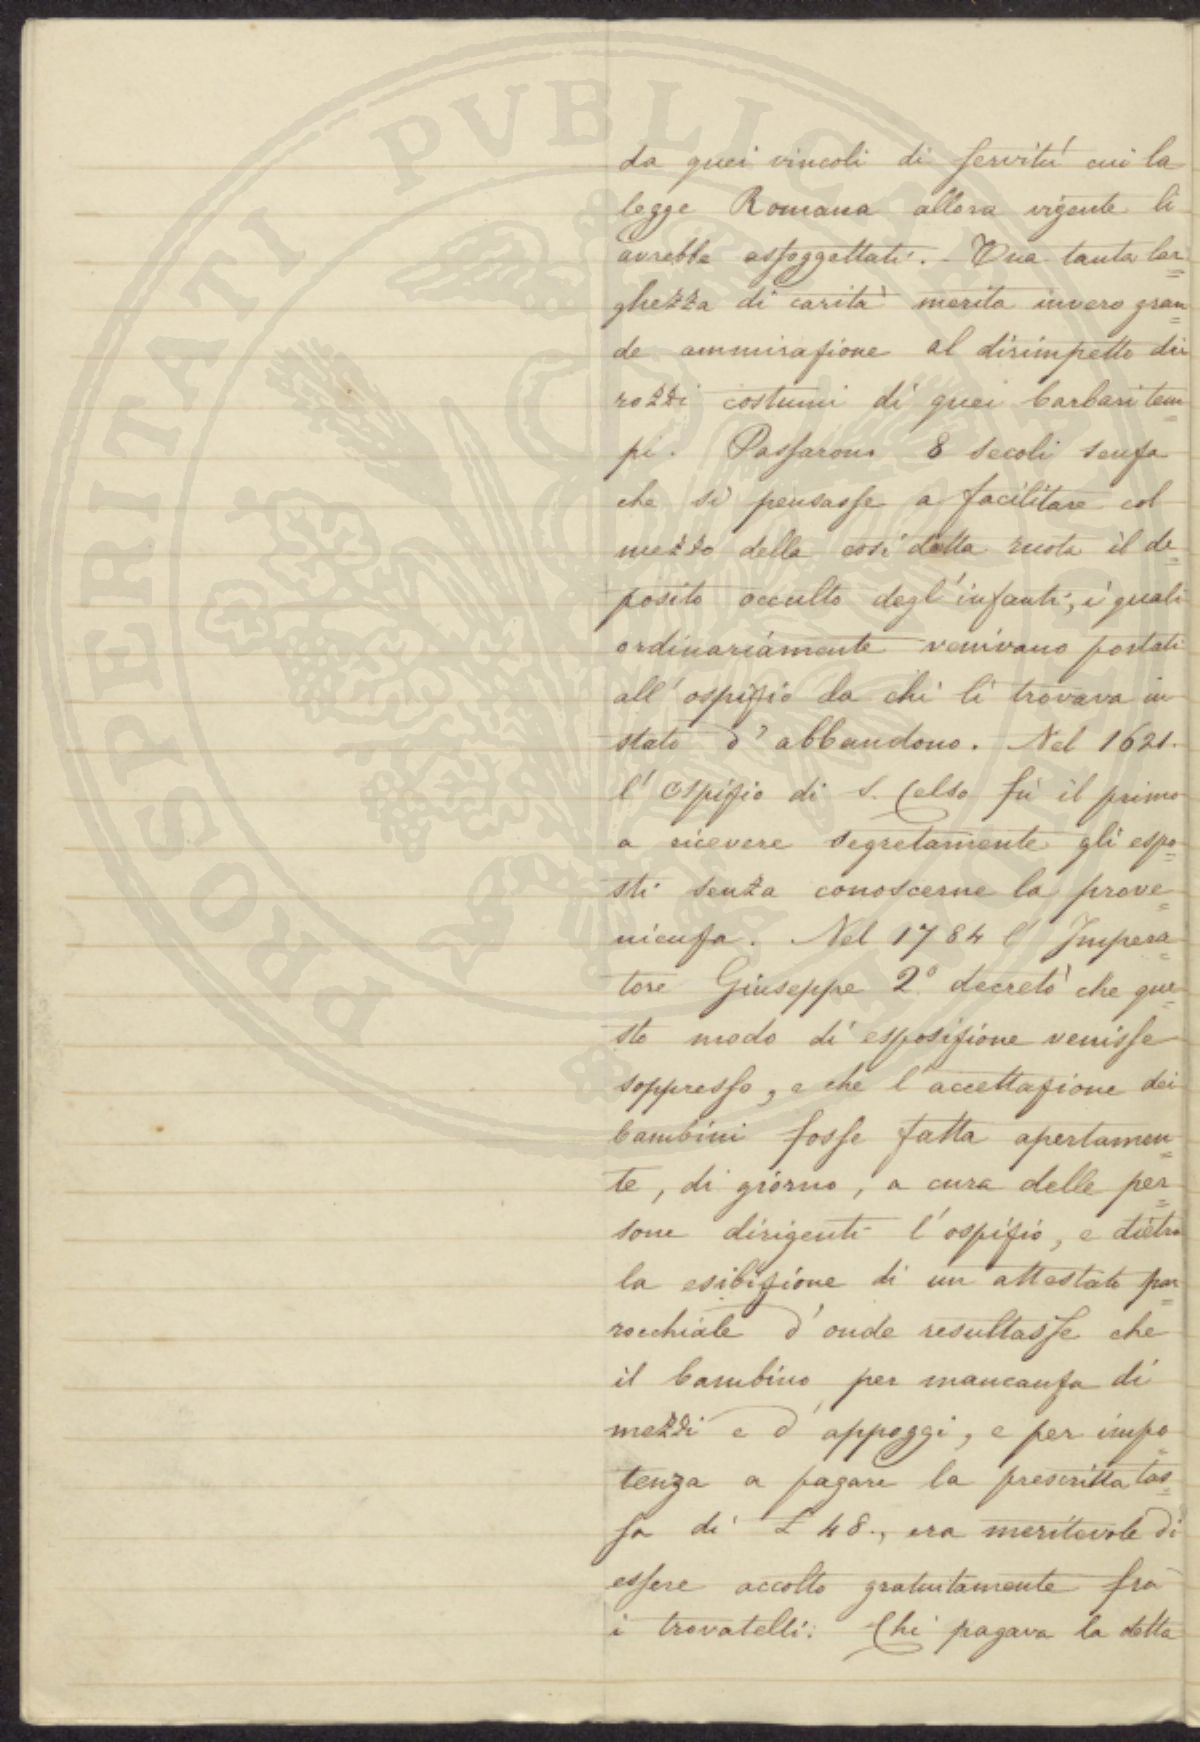 da quei vincoli di servitú cui la
legge Romana allora vigente li
avrebbe assoggettati. - Una tanta lar=
ghezza di carità merita invero gran=
de ammirazione al dirimpetto dei
rozzi costumi di quei barbari tem=
pi. Passarono 8 secoli senza
che si pensasse a facilitare col
mezzo della così detta ruota il de=
posito occulto degl'infanti, i quali
ordinariamente venivano portati
all'ospizio da chi li trovava in
stato d'abbandono. Nel 1621.
l'Ospizio di S. Celso fù il primo
a ricevere segretamente gli espo=
sti senza conoscerne la prove=
nienza. Nel 1784 l'Impera=
tore Giuseppe 2º decretò che que=
sto modo di esposizione venisse
soppresso, e che l'accettazione dei
bambini fosse fatta apertamen=
te, di giorno, a cura delle per=
sone dirigenti l'ospizio, e dietro
la esibizione di un attestato par=
rocchiale d'onde resultasse che
il bambino per mancanza di
mezzi e d'appoggi, e per impo=
tenza a pagare la prescritta tas=
sa di £ 48., era meritevole di
essere accolto gratuitamente fra
i trovatelli. Chi pagava la detta
PROSPERITATI PVBLICAE